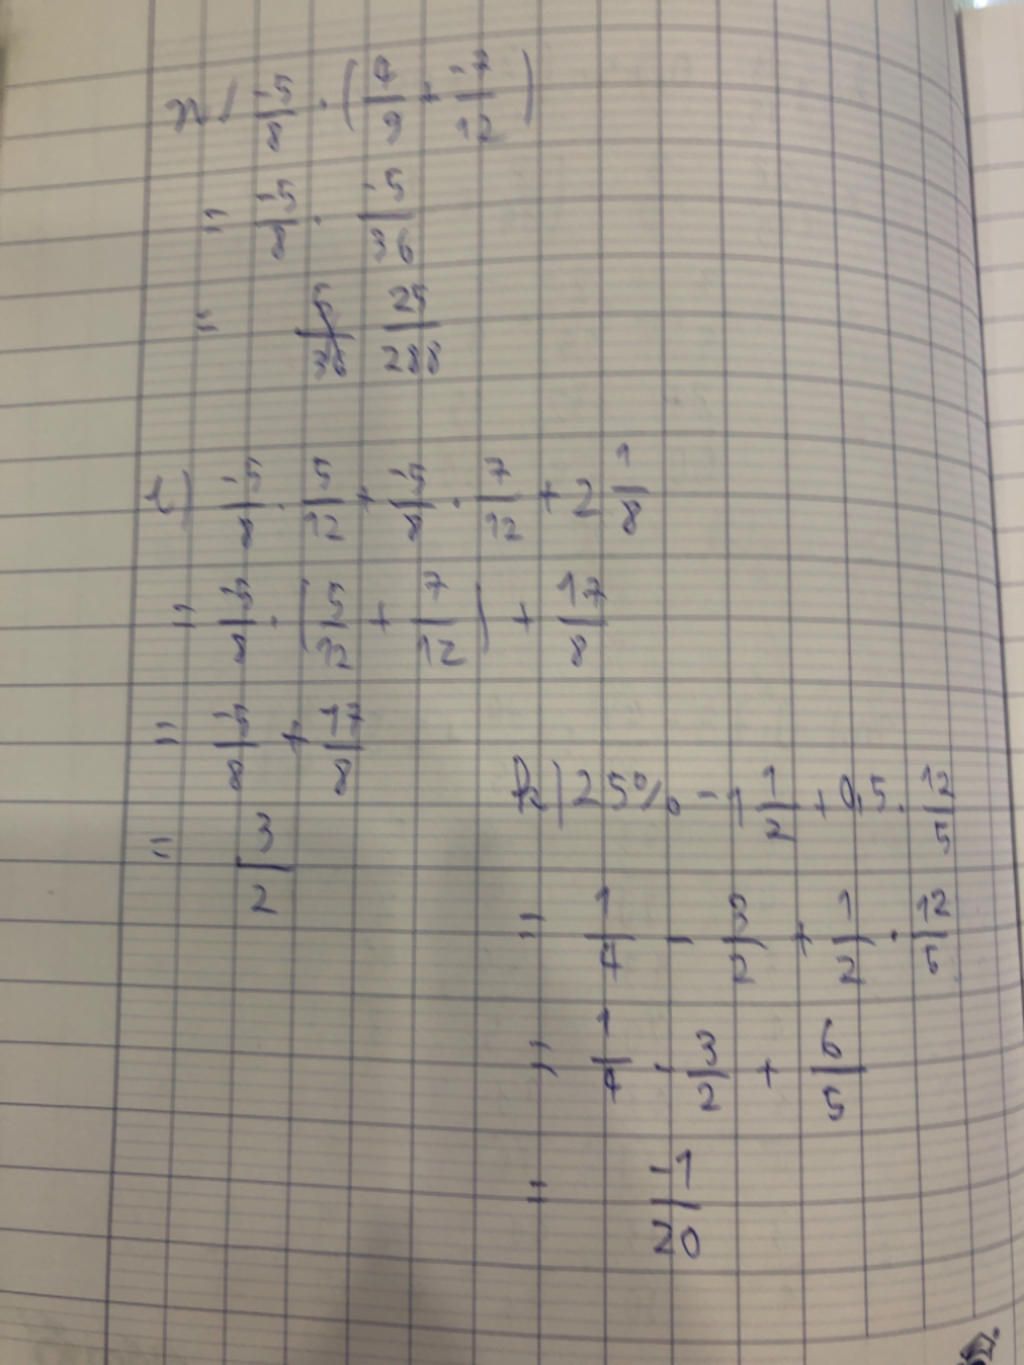 n/ -5/8 · (4/9 + -7/12)
= -5/8 · -5/36
= 25/288
l) -5/8 · 5/12 + -5/8 · 7/12 + 2 1/8
= -5/8 · (5/12 + 7/12) + 17/8
= -5/8 + 17/8
= 3/2
k) 25% - 1 1/2 + 0,5 · 12/5
= 1/4 - 3/2 + 1/2 · 12/5
= 1/4 - 3/2 + 6/5
= -1/20